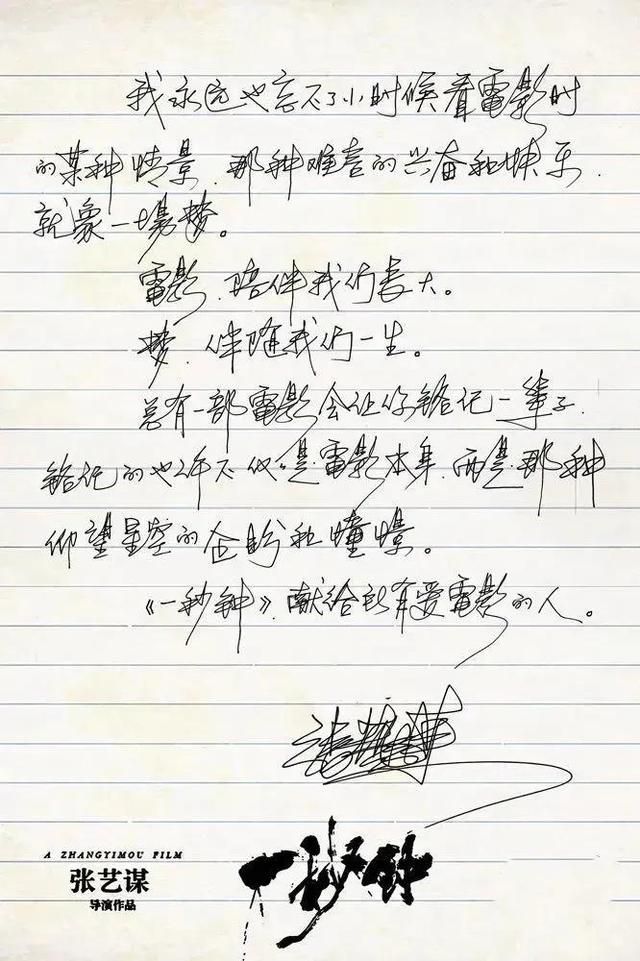 我永远也忘不了小时候看電影时
的某种情景,那种难言的兴奋和快乐,
就象一場梦。
電影,陪伴我们长大。
梦,伴随我们一生。
总有一部電影会让你铭记一辈子,
铭记的也许不仅是電影本身,而是那种
仰望星空的企盼和憧憬。
《一秒钟》,献给所有爱電影的人。
A ZHANGYIMOU FILM
张艺谋
导演作品
一秒钟